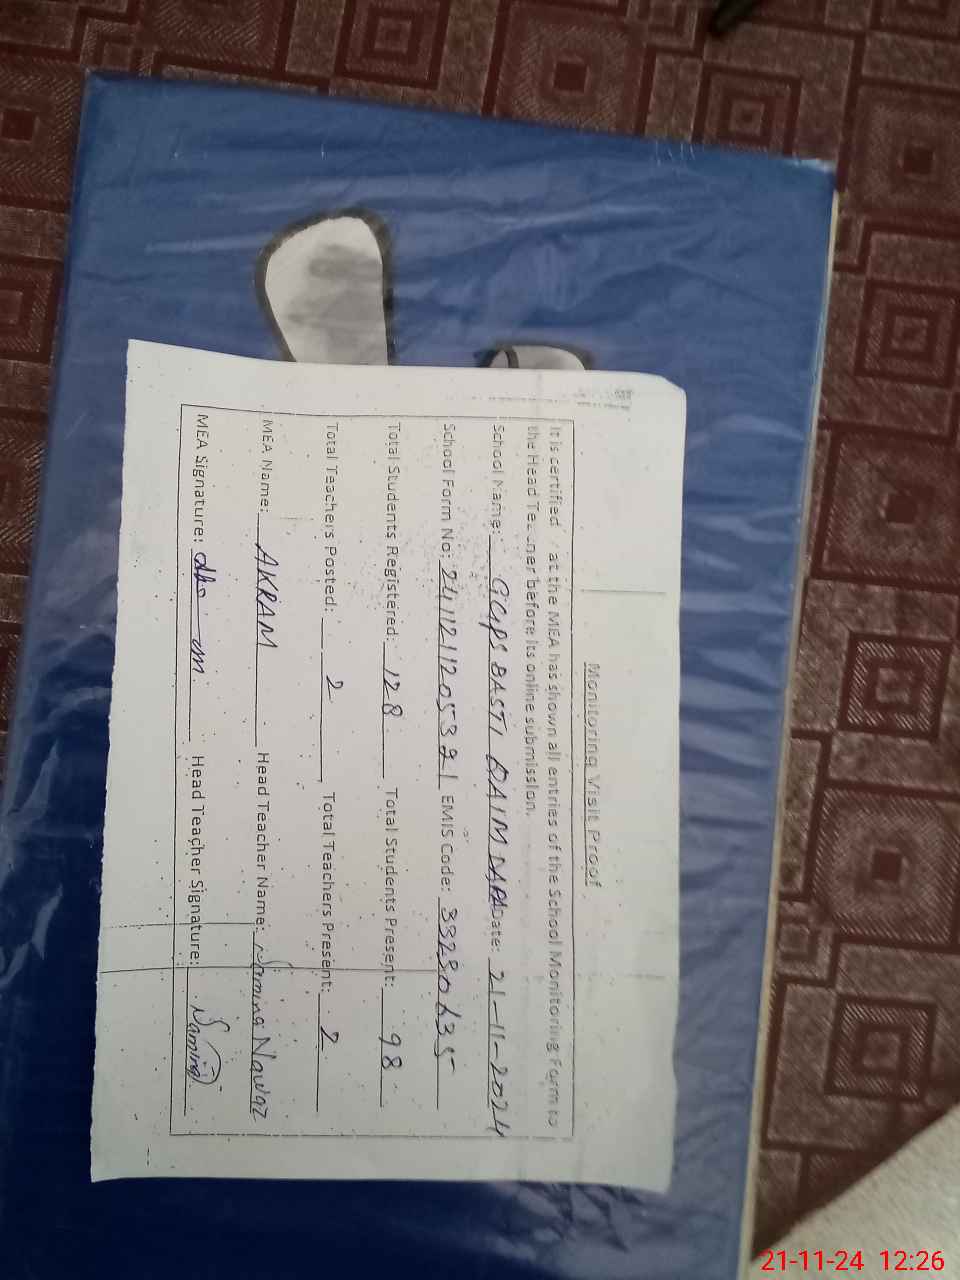 Monitoring Visit Proof
It is certified at the MEA has shown all entries of the School Monitoring Form to
the Head Teacher before its online submission.
School Name: GGPS BASTI QAIM DAPA Date: 21-11-2024
School Form No: 2411211205371 EMIS Code: 33230635
Total Students Registered: 128 Total Students Present: 98
Total Teachers Posted: 2 Total Teachers Present: 2
MEA Name: AKRAM Head Teacher Name: Samina Nawaz
MEA Signature: Head Teacher Signature: Samina
21-11-24 12:26